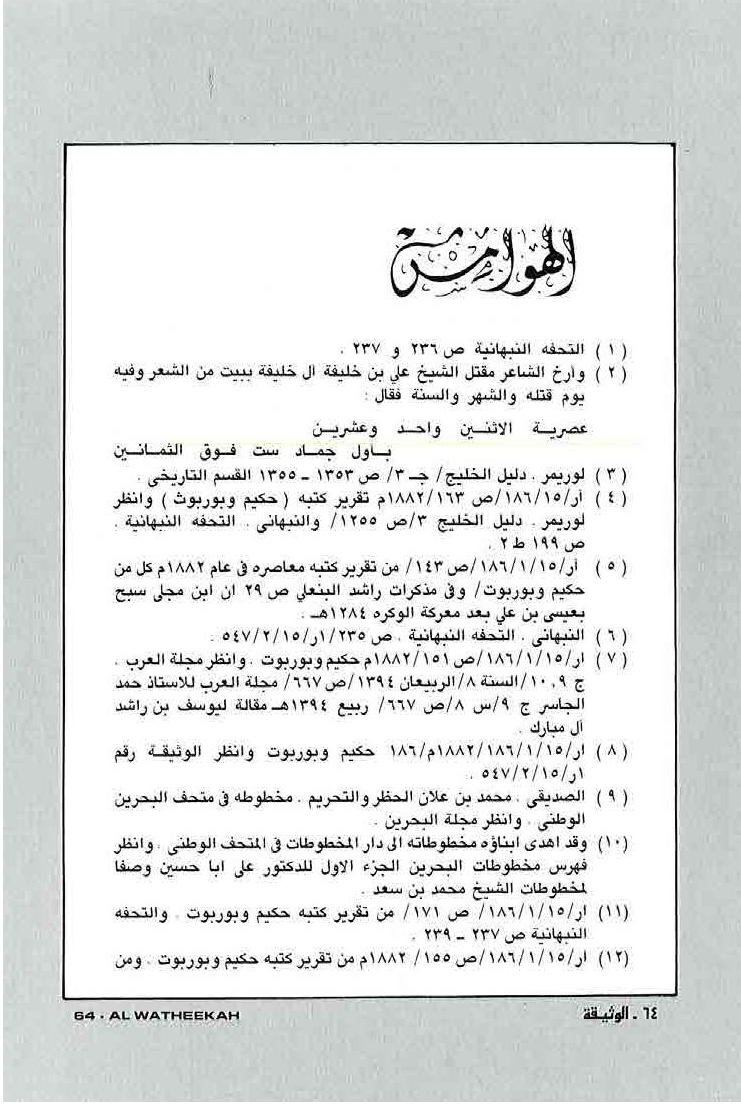 الهوامش
( ١ ) التحفه النبهانية ص ٢٣٦ و ٢٣٧ .
( ٢ ) وأرخ الشاعر مقتل الشيخ علي بن خليفة آل خليفة ببيت من الشعر وفيه
يوم قتله والشهر والسنة فقال :
عصريــة الاثنـين واحــد وعشريــن
بــاول جمــاد ست فــوق الثمــانــين
( ٣ ) لوريمر . دليل الخليج/ جـ ٣/ ص ١٣٥٣ ــ ١٣٥٥ القسم التاريخي .
( ٤ ) أر/١٨٦/١٥/ص ١٨٨٢/١٦٣م تقرير كتبه ( حكيم وبوربوث ) وانظر
لوريمر . دليل الخليج ٣/ص ١٢٥٥/ والنبهانى . التحفه النبهانية .
ص ١٩٩ ط ٢ .
( ٥ ) أر/١٨٦/١/١٥/ص ١٤٣/ من تقرير كتبه معاصره في عام ١٨٨٢م كل من
حكيم وبوربوت/ وفي مذكرات راشد البنعلي ص ٢٩ ان ابن مجلى سبح
بعيسى بن علي بعد معركة الوكره ١٢٨٤هـ .
( ٦ ) النبهانى . التحفه النبهانية . ص ٢٣٥/ار/٥٤٧/٢/١٥ .
( ٧ ) ار/١٨٦/١/١٥/ص ١٨٨٢/١٥١م حكيم وبوربوت . وانظر مجلة العرب .
ج ٩ ، ١٠/السنة ٨/الربيعان ١٣٩٤/ص ٦٦٧/ مجلة العرب للاستاذ حمد
الجاسر ج ٩/س ٨/ص ٦٦٧/ ربيع ١٣٩٤هـ مقالة ليوسف بن راشد
آل مبارك .
( ٨ ) ار/١٨٨٢/١٨٦/١/١٥م/١٨٦ حكيم وبوربوت وانظر الوثيقـة رقم
ار/٥٤٧/٢/١٥ .
( ٩ ) الصديقى . محمد بن علان الحظر والتحريم . مخطوطه في متحف البحرين
الوطنى . وانظر مجلة البحرين .
(١٠) وقد اهدى ابناؤه مخطوطاته الى دار المخطوطات في المتحف الوطنى . وانظر
فهرس مخطوطات البحرين الجزء الاول للدكتور على ابا حسين وصفا
لمخطوطات الشيخ محمد بن سعد .
(١١) ار/١٨٦/١/١٥/ ص ١٧١/ من تقرير كتبه حكيم وبوربوت . والتحفه
النبهانية ص ٢٣٧ ــ ٢٣٩ .
(١٢) أر/١٨٦/١/١٥/ص ١٥٥/ ١٨٨٢م من تقرير كتبه حكيم وبوربوت . ومن
٦٤ ـ الوثيقة
64 · AL WATHEEKAH